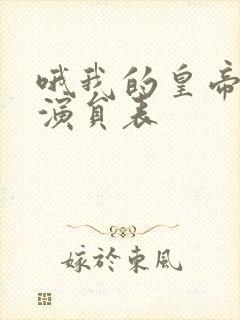 哦我的皇帝
演员表
嫁於東風